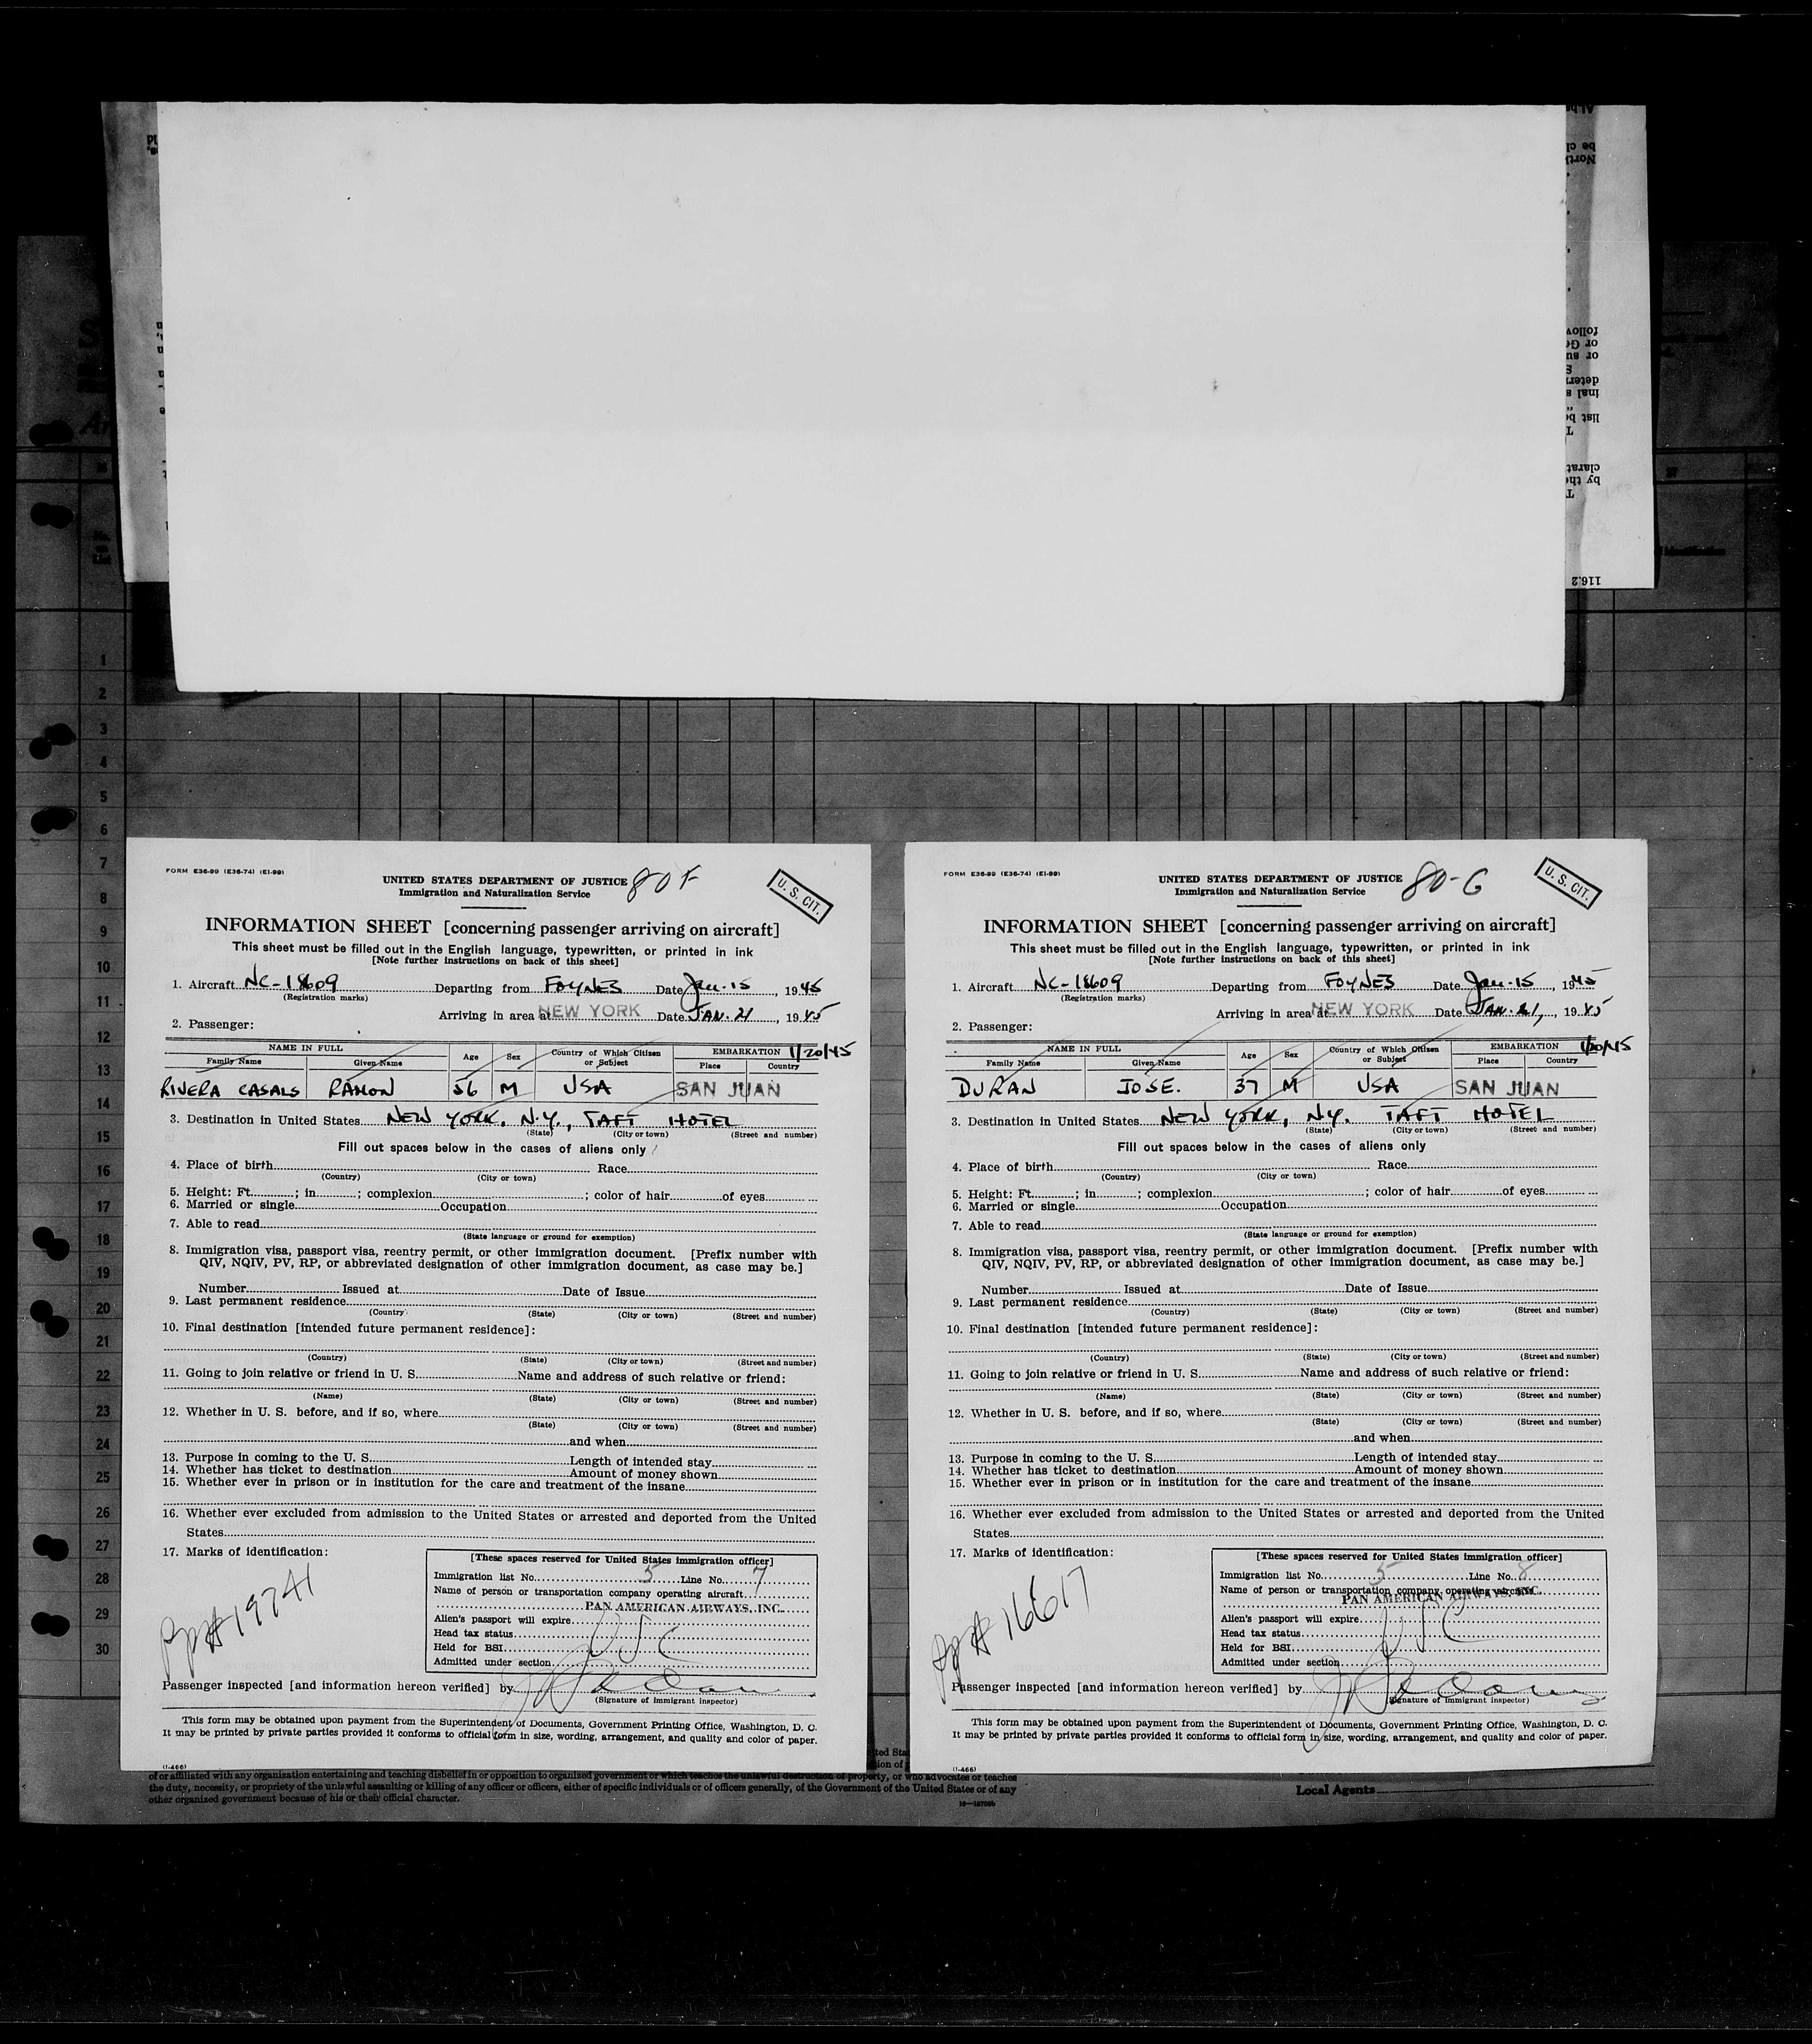 FORM E36-99 (E36-74) (E1-99)
UNITED STATES DEPARTMENT OF JUSTICE 80 F
Immigration and Naturalization Service
U. S. CIT.
INFORMATION SHEET [concerning passenger arriving on aircraft]
This sheet must be filled out in the English language, typewritten, or printed in ink
[Note further instructions on back of this sheet]
1. Aircraft NC-18609 Departing from FOYNES Date Jan. 15, 1945
(Registration marks)
Arriving in area at NEW YORK Date JAN. 21, 1945
2. Passenger:
NAME IN FULL Age Sex Country of Which Citizen or Subject EMBARKATION 1/20/45
Family Name Given Name Place Country
RIVERA CASALS RAMON 56 M USA SAN JUAN
3. Destination in United States NEW YORK, N.Y., TAFT HOTEL
(State) (City or town) (Street and number)
Fill out spaces below in the cases of aliens only
4. Place of birth Race
(Country) (City or town)
5. Height: Ft. ; in ; complexion ; color of hair of eyes
6. Married or single Occupation
7. Able to read
(State language or ground for exemption)
8. Immigration visa, passport visa, reentry permit, or other immigration document. [Prefix number with
QIV, NQIV, PV, RP, or abbreviated designation of other immigration document, as case may be.]
Number Issued at Date of Issue
9. Last permanent residence
(Country) (State) (City or town) (Street and number)
10. Final destination [intended future permanent residence]:
(Country) (State) (City or town) (Street and number)
11. Going to join relative or friend in U. S. Name and address of such relative or friend:
(Name) (State) (City or town) (Street and number)
12. Whether in U. S. before, and if so, where
(State) (City or town) (Street and number)
and when
13. Purpose in coming to the U. S. Length of intended stay
14. Whether has ticket to destination Amount of money shown
15. Whether ever in prison or in institution for the care and treatment of the insane
16. Whether ever excluded from admission to the United States or arrested and deported from the United
States
17. Marks of identification:
[These spaces reserved for United States immigration officer]
Immigration list No. 5 Line No. 7
Name of person or transportation company operating aircraft
PAN AMERICAN AIRWAYS, INC.
Alien's passport will expire
Head tax status
Held for BSI
Admitted under section
USC
Pp# 19741
Passenger inspected [and information hereon verified] by
(Signature of immigrant inspector)
This form may be obtained upon payment from the Superintendent of Documents, Government Printing Office, Washington, D. C.
It may be printed by private parties provided it conforms to official form in size, wording, arrangement, and quality and color of paper.
(1-466)
FORM E36-99 (E36-74) (E1-99)
UNITED STATES DEPARTMENT OF JUSTICE 80-G
Immigration and Naturalization Service
U. S. CIT.
INFORMATION SHEET [concerning passenger arriving on aircraft]
This sheet must be filled out in the English language, typewritten, or printed in ink
[Note further instructions on back of this sheet]
1. Aircraft NC-18609 Departing from FOYNES Date Jan. 15, 1945
(Registration marks)
Arriving in area at NEW YORK Date JAN. 21, 1945
2. Passenger:
NAME IN FULL Age Sex Country of Which Citizen or Subject EMBARKATION 1/20/45
Family Name Given Name Place Country
DURAN JOSE. 37 M USA SAN JUAN
3. Destination in United States NEW YORK, N.Y. TAFT HOTEL
(State) (City or town) (Street and number)
Fill out spaces below in the cases of aliens only
4. Place of birth Race
(Country) (City or town)
5. Height: Ft. ; in ; complexion ; color of hair of eyes
6. Married or single Occupation
7. Able to read
(State language or ground for exemption)
8. Immigration visa, passport visa, reentry permit, or other immigration document. [Prefix number with
QIV, NQIV, PV, RP, or abbreviated designation of other immigration document, as case may be.]
Number Issued at Date of Issue
9. Last permanent residence
(Country) (State) (City or town) (Street and number)
10. Final destination [intended future permanent residence]:
(Country) (State) (City or town) (Street and number)
11. Going to join relative or friend in U. S. Name and address of such relative or friend:
(Name) (State) (City or town) (Street and number)
12. Whether in U. S. before, and if so, where
(State) (City or town) (Street and number)
and when
13. Purpose in coming to the U. S. Length of intended stay
14. Whether has ticket to destination Amount of money shown
15. Whether ever in prison or in institution for the care and treatment of the insane
16. Whether ever excluded from admission to the United States or arrested and deported from the United
States
17. Marks of identification:
[These spaces reserved for United States immigration officer]
Immigration list No. 5 Line No. 8
Name of person or transportation company operating aircraft
PAN AMERICAN AIRWAYS, INC.
Alien's passport will expire
Head tax status
Held for BSI
Admitted under section
USC
Pp# 16617
Passenger inspected [and information hereon verified] by
(Signature of immigrant inspector)
This form may be obtained upon payment from the Superintendent of Documents, Government Printing Office, Washington, D. C.
It may be printed by private parties provided it conforms to official form in size, wording, arrangement, and quality and color of paper.
(1-466)
of or affiliated with any organization entertaining and teaching disbelief in or opposition to organized government or which teaches the unlawful destruction of property, or who advocates or teaches
the duty, necessity, or propriety of the unlawful assaulting or killing of any officer or officers, either of specific individuals or of officers generally, of the Government of the United States or of any
other organized government because of his or their official character.
Local Agents
1
2
3
4
5
6
7
8
9
10
11
12
13
14
15
16
17
18
19
20
21
22
23
24
25
26
27
28
29
30
116.2